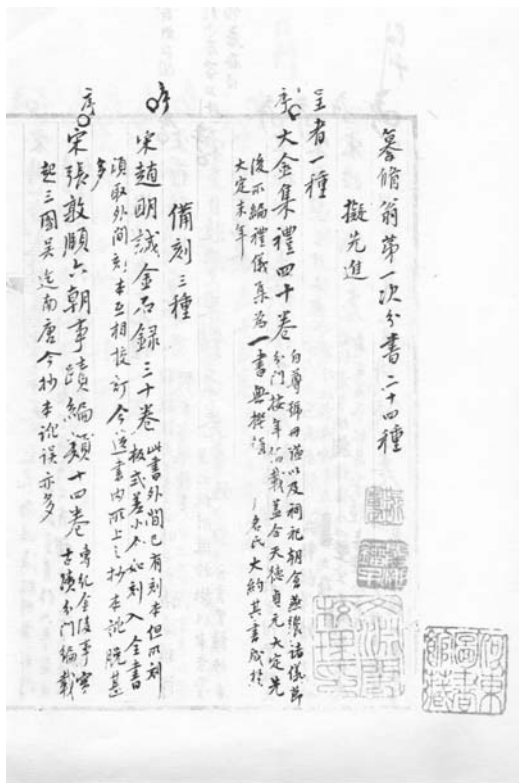 翁第一次分書二十四種
擬先進
呈者一種
序 大金集禮四十卷 自尊號冊諡以及祠祀朝會燕饗諸儀節
分門按年 載蓋合天德貞元大定先
後所編禮儀集為一書無撰 名氏大約其書成於
大定末年
備刻三種
序 宋趙明誠金石録三十卷 此書外間已有刻本但所刻
板式差小今 刻入全書
須取外間刻本互相校訂今進書內所上之抄本訛脫甚
多
序 宋張敦頤六朝事蹟編類十四卷 專紀金陵事實
古蹟分門編載
起三國吳迄南唐今抄本訛誤亦多
何東
圖書
館藏